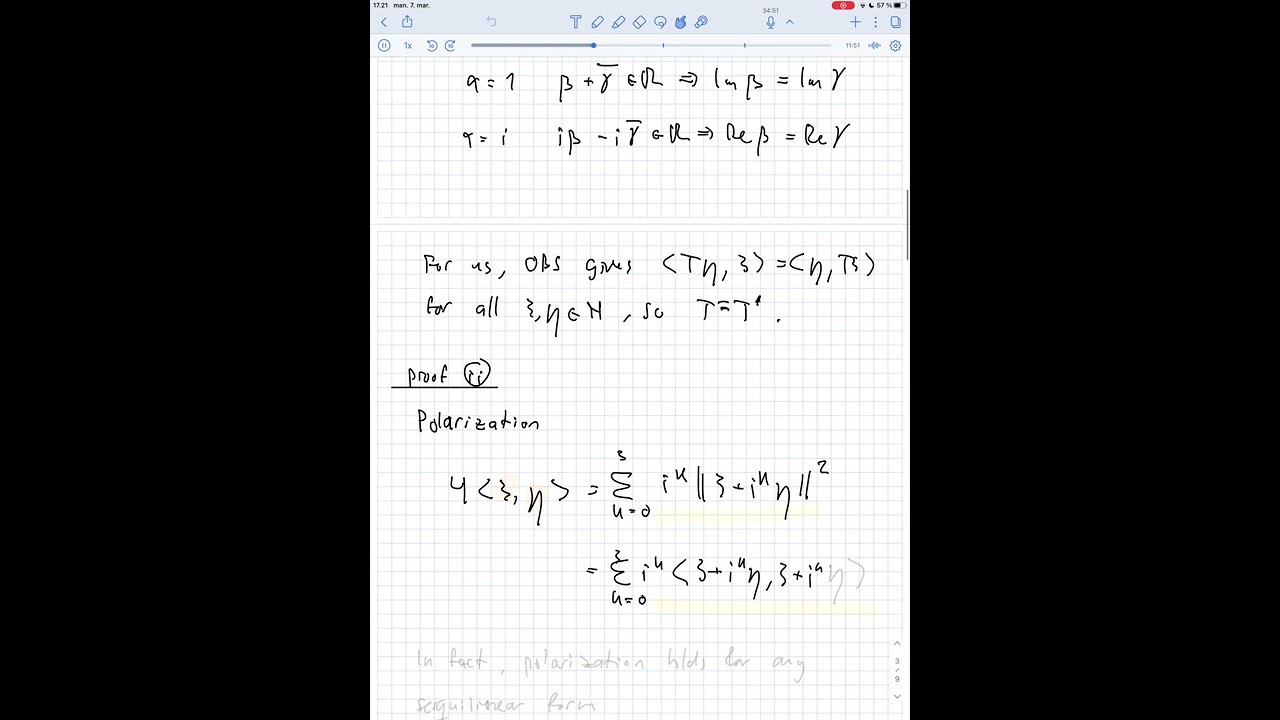 17.21 man. 7. mar.
57 %
34:51
1x
11:51
α = 1 β + γ̅ ∈ ℝ ⇒ Im β = Im γ
α = i iβ - iγ̅ ∈ ℝ ⇒ Re β = Re γ
For us, OBS gives ⟨Tη, ξ⟩ = ⟨η, Tξ⟩
for all ξ, η ∈ H, so T = T*.
proof (ii)
Polarization
4⟨ξ, η⟩ = ∑_{k=0}^{3} i^k ‖ξ + i^k η‖²
= ∑_{k=0}^{3} i^k ⟨ξ + i^k η, ξ + i^k η⟩
In fact, polarization holds for any
sesquilinear form
3
/
9